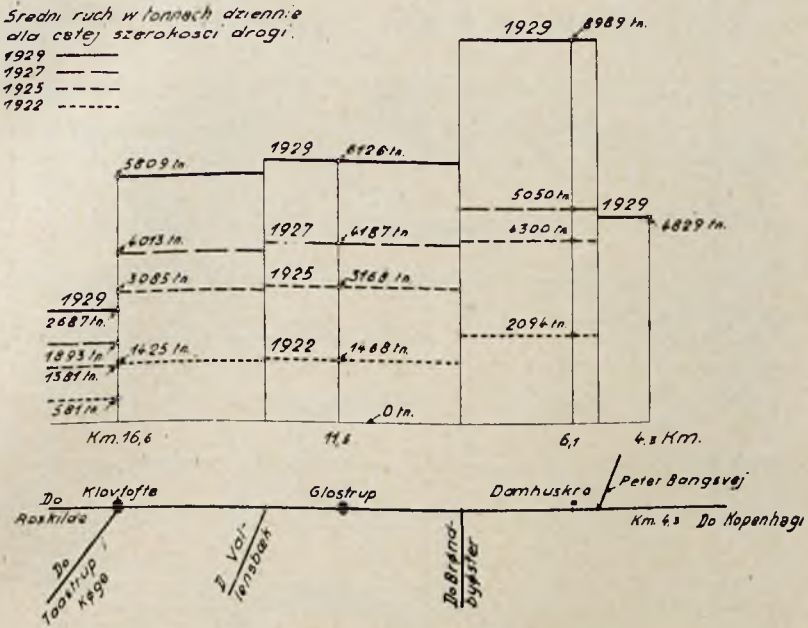 Średni ruch w tonnach dziennie
dla całej szerokości drogi.
1929
1927
1925
1922
1929
8989 tn.
5809 tn.
1929
6126 tn.
5050 tn.
1929
4829 tn.
4013 tn.
1927
4187 tn.
4300 tn.
3085 tn.
1925
3168 tn.
1929
2687 tn.
2094 tn.
1893 tn.
1425 tn.
1922
1468 tn.
1381 tn.
581 tn.
0 tn.
Km. 16,6
11,6
6,1
4,3 Km.
Do
Roskilde
Klovtofte
Glostrup
Damhuskro
Peter Bangsvej
Km. 4,3
Do Kopenhagi
Do
Taastrup i
Køge
D. Val-
lensbæk
Do Brønd-
byøster